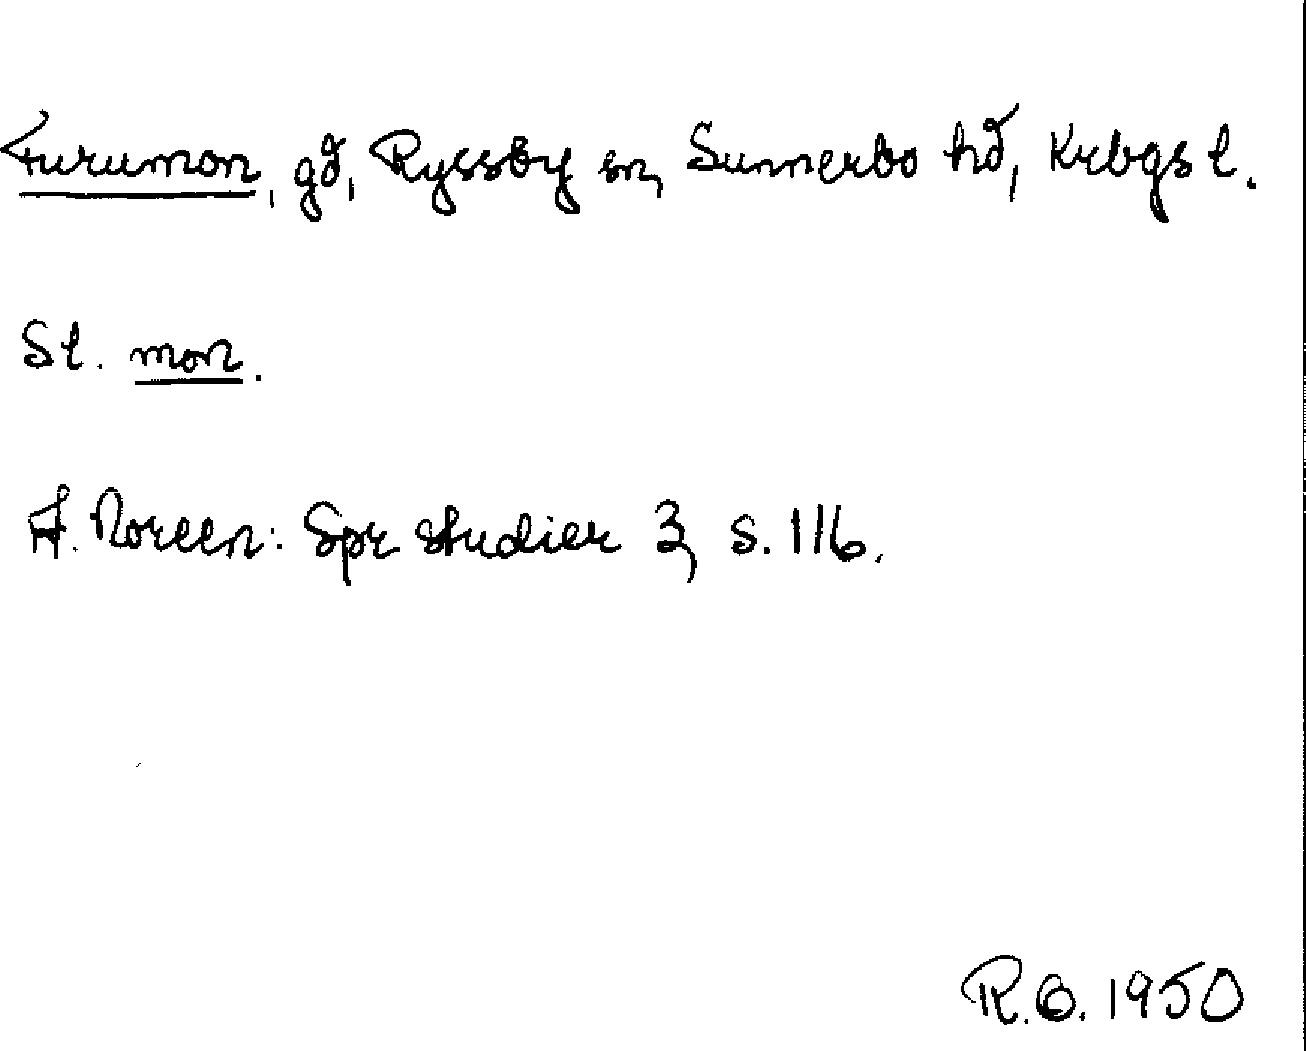 Furumon, gd, Ryssby sn, Sunnerbo hd, Krbgs l.
St. mon.
A. Noreen: Spr studier 3, s. 116.
R.O. 1950